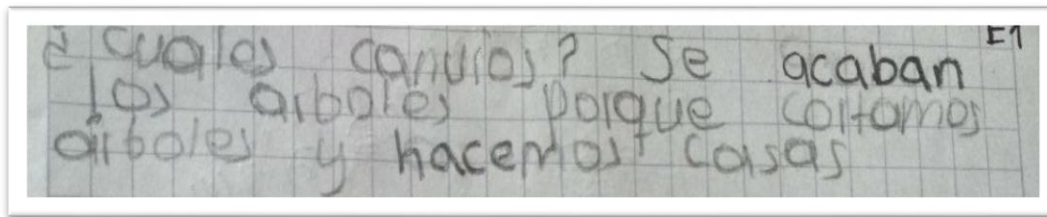 ¿cuales canvios? Se acaban E1
los arboles porque cortamos
arboles y hacemos casas